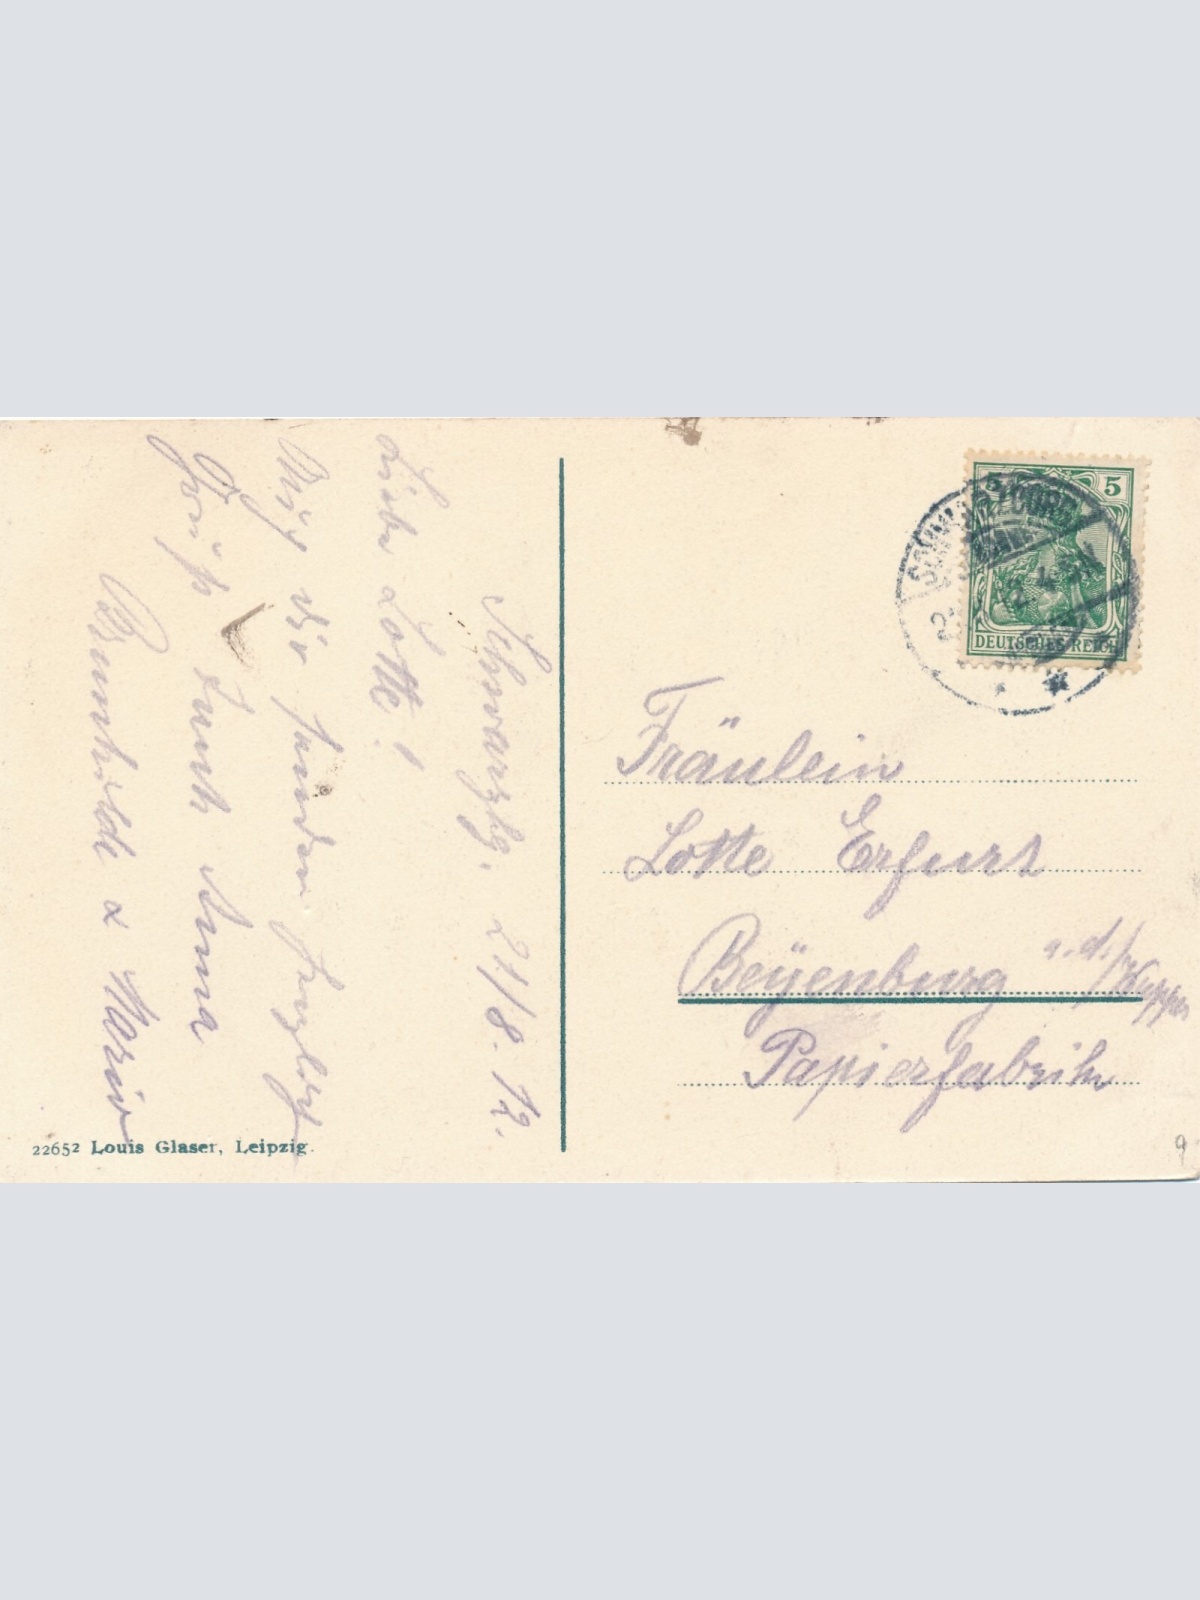 Schwarzbg. 21/8. 12.
Liebe Lotte!
Auch wir senden herzlichst
Gruß Tante Anna
Brunhilde & Marie
22652 Louis Glaser, Leipzig.
5
DEUTSCHES REICH
SCHWARZBURG
Fräulein
Lotte Erfurt
Beÿenburg a.d./Wupper
Papierfabrik
9